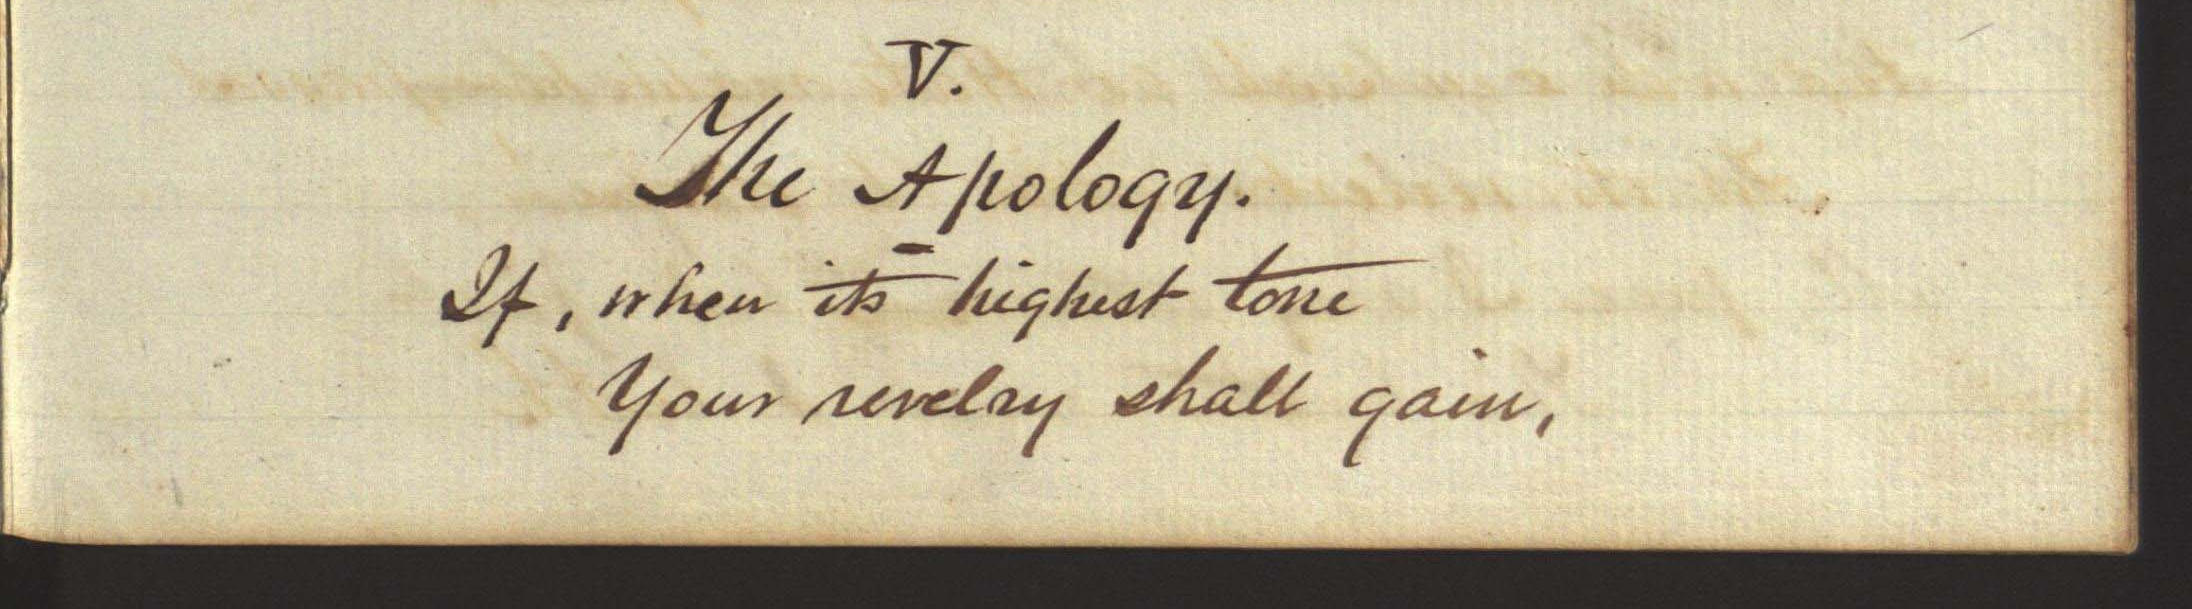 V.
The Apology.
If, when its highest tone
Your revelry shall gain,